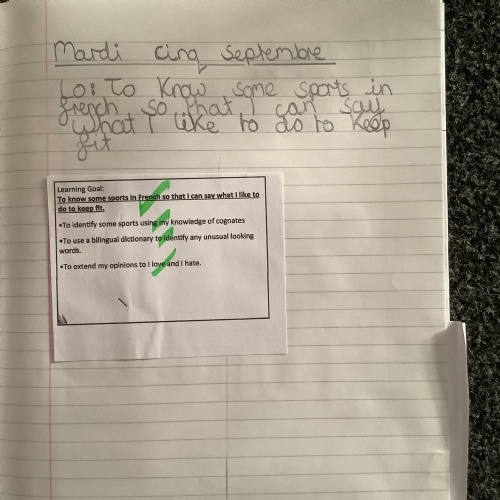 Mardi cinq septembre
LO: To know some sports in
french so that I can say
what I like to do to keep
fit
Learning Goal:
To know some sports in French so that I can say what I like to
do to keep fit.
•To identify some sports using my knowledge of cognates
•To use a bilingual dictionary to identify any unusual looking
words.
•To extend my opinions to I love and I hate.